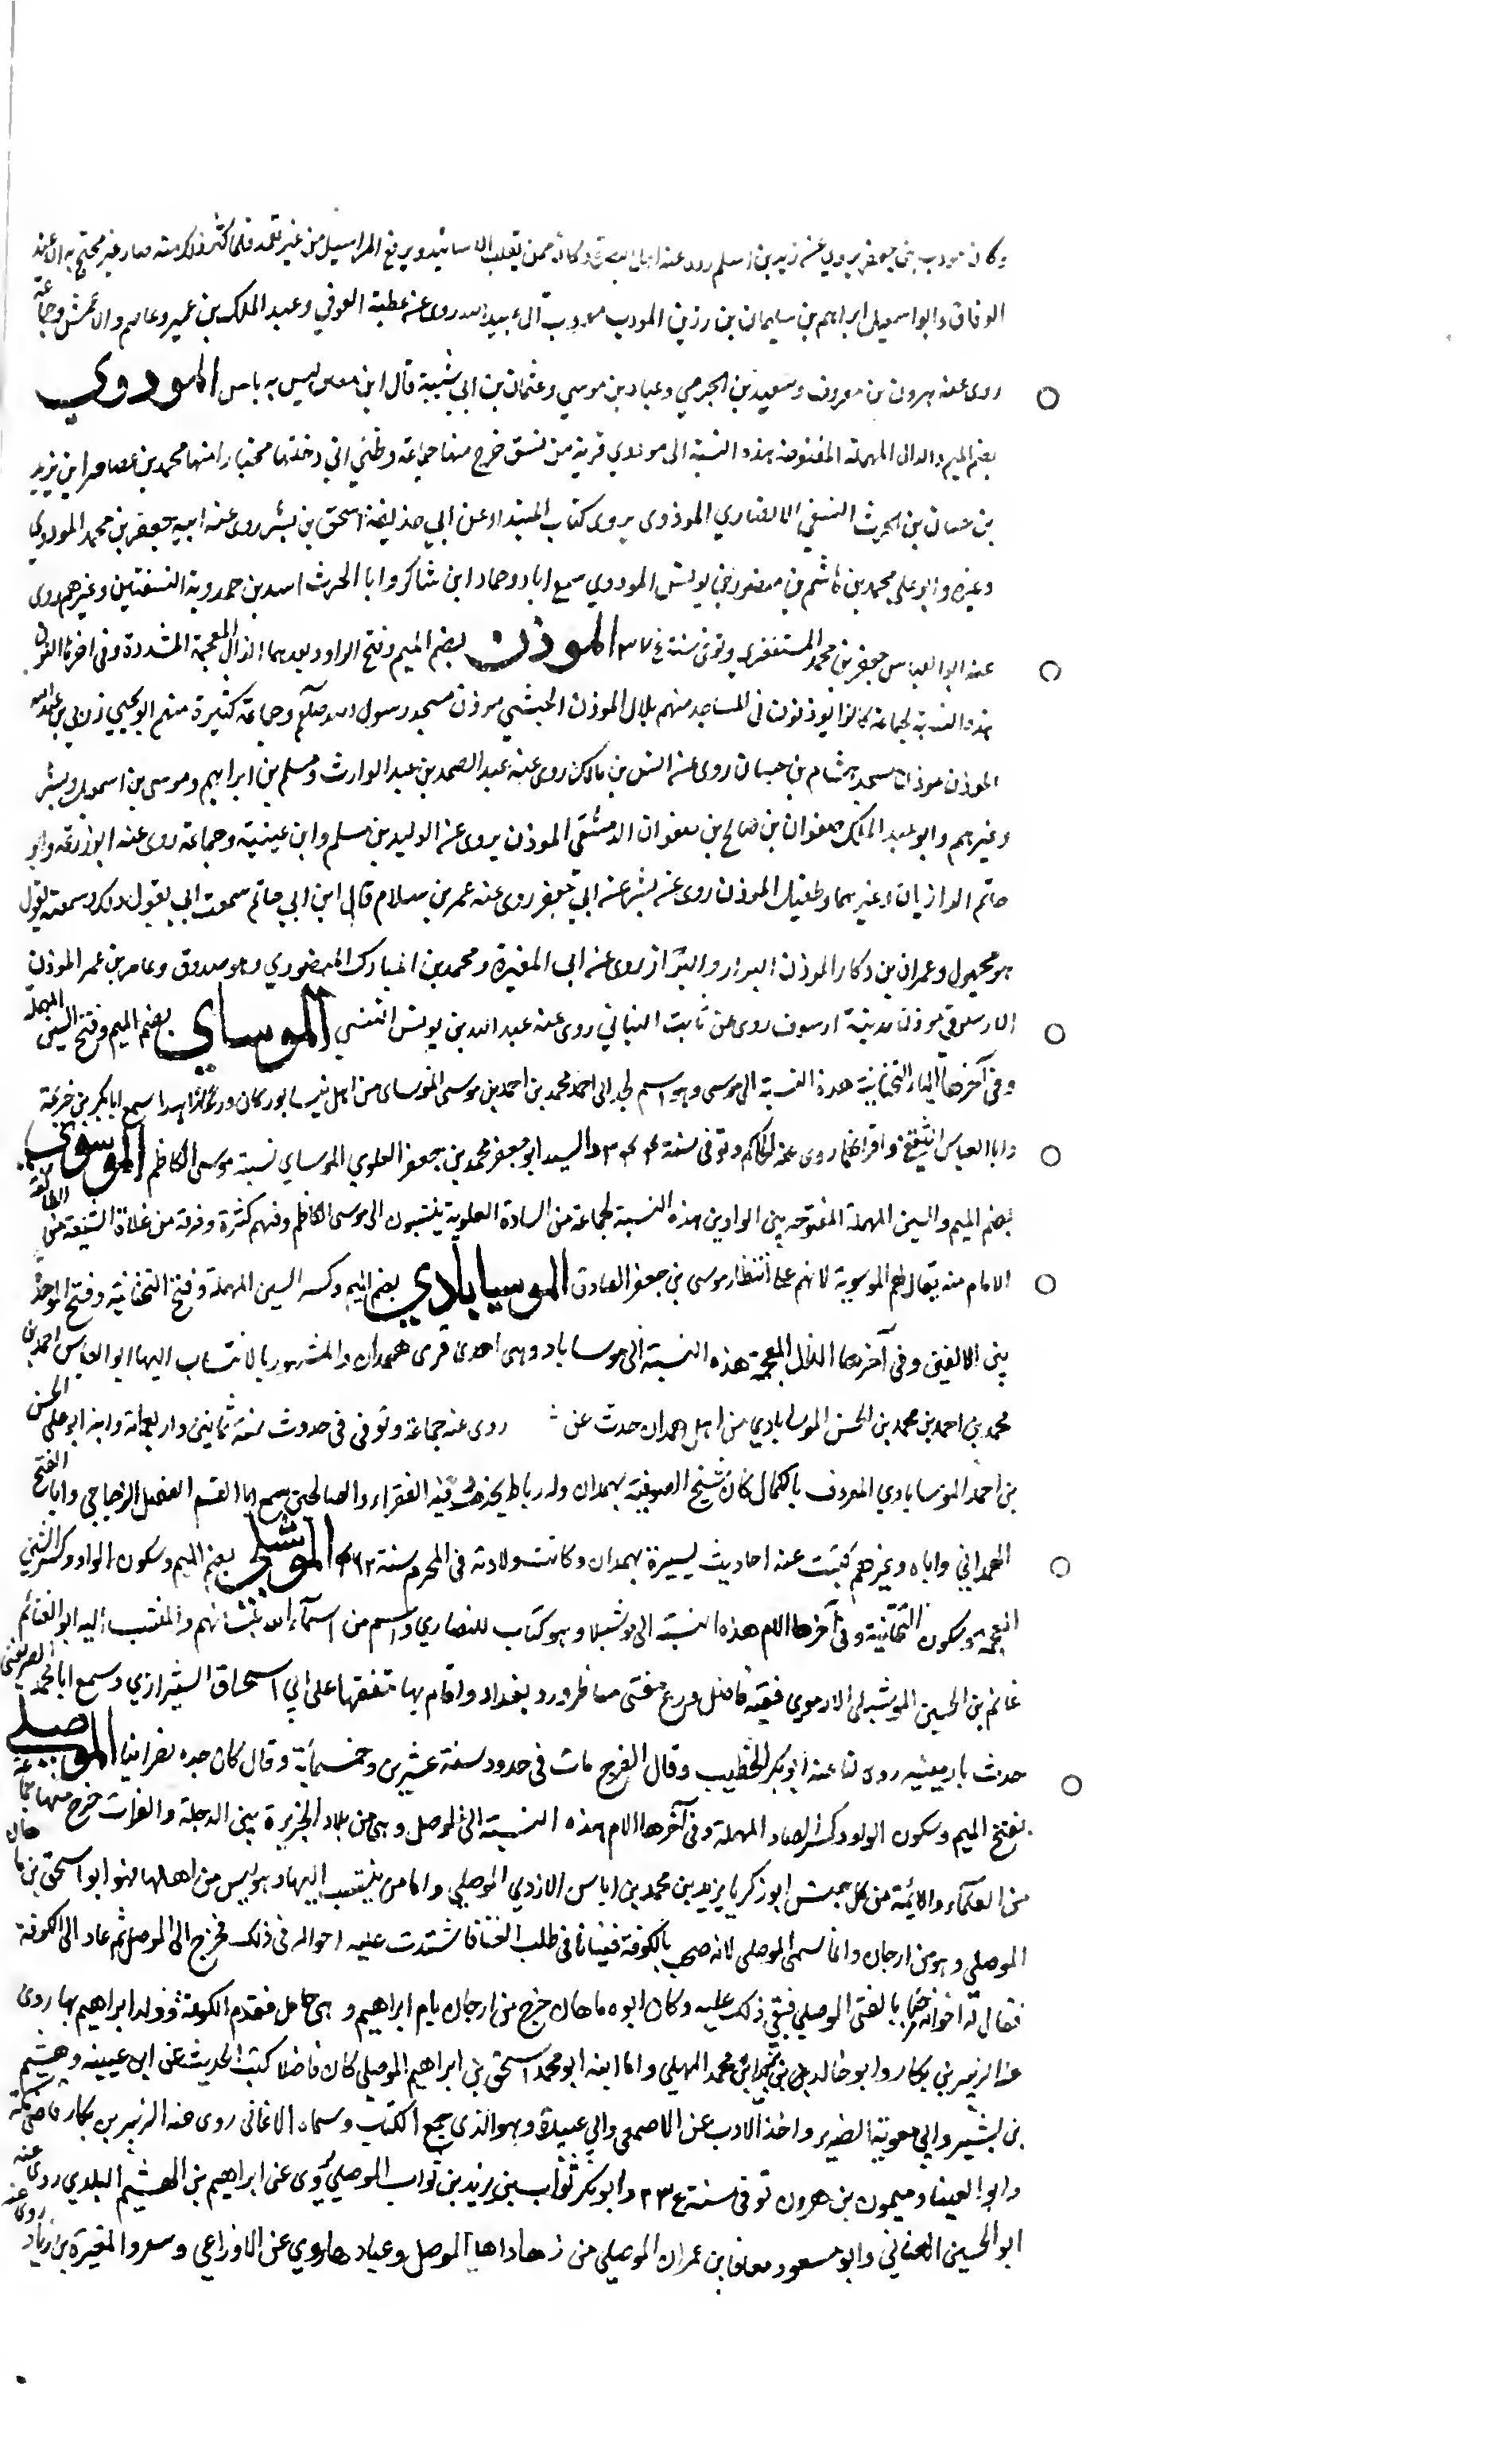 وكان مودب بني جعفر يروي عن زيد بن اسلم روى عنه اهل البصرة وكان ممن يقلب الاسانيد ويرفع المراسيل من غير تعمد فلما كثر ذلك منه صار غير محتج به الا عند
الوفاق وابو اسمعيل ابراهيم بن سليمان بن رزين المودب مودب الى عبيد الله روى عن عطية العوفي وعبد الملك بن عمير وعاصم والاعمش وجماعة
روى عنه هرون بن معروف وسعيد بن الجرمي وعباد بن موسي وعثمان بن ابي شيبة قال ابن معين ليس به باس المودوي
بضم الميم والدال المهملة المفتوحة هذه النسبة الى مودوي قرية من نسق خرج منها جماعة وظني اني دخلتها مجتازا منها محمد بن عصام ابن يزيد
بن حسان بن الحرث النسفي الانصاري الموذوى يروى كتاب المبتدا عن ابي حذيفة اسحق بن بشر روى عنه ابنه جعفر بن محمد المودوي
وغيره وابو علي محمد بن هاشم بن منصور بن يونس المودوي سمع ابا حماد ابن شاكر وابا الحرث اسد بن حمدوية النسفيين وغيرهم روى
عنه ابو العباس جعفر بن محمد المستغفري وتوفى سنة ٣٧٤ الموذن بضم الميم وفتح الواو وبعدهما الذال المعجمة المشددة وفى اخرها النون
هذه النسبة لجماعة كانوا يوذنون فى المساجد منهم بلال الموذن الحبشي موذن مسجد رسول الله صلعم وجماعة كثيرة منهم ابو يحيي زربي بن عبد الله
الموذن موذن مسجد هشام بن حسان روى عن انس بن مالك روى عنه عبد الصمد بن عبد الوارث ومسلم بن ابراهيم وموسى بن اسمعيل وبشر
وغيرهم وابو عبد الملك صفوان بن صالح بن صفوان الدمشقي الموذن يروى عن الوليد بن مسلم وابن عيينة وجماعة روى عنه ابو زرعة وابو
حاتم الرازيان وغيرهما وطفيل الموذن روى عن بشر عن ابي جعفر روى عنه عمر بن سلام قال ابن ابي حاتم سمعت ابي يقول ذلك وسمعته يقول
هو مجهول وعمران بن دكار الموذن البرار والبزاز روى عن ابى المغيرة ومحمد بن المبارك الصوري وهو صدوق وعامر بن عمر الموذن
الارسوفي موذن مدينة ارسوف روى عن ثابت البناني روى عنه عبد الله بن يونس التنيسي الموساي بضم الميم وفتح السين المهملة
وفى آخرها الياء التحتانية هذه النسبة الى موسى وهو اسم لجد الى احمد محمد بن احمد بن موسى الموساى من اهل نيسابور كان ورعا زاهدا سمع ابا بكر بن خزيمة
وابا العباس الثقفي واقرانهما روى عنه الحاكم وتوفى سنة والسيد ابو جعفر محمد بن جعفر العلوي الموساي نسبة موسى الكاظم الموسوي
بضم الميم والسين المهملة المفتوحة بين الواوين هذه النسبة لجماعة من السادة العلوية ينتسبون الى موسى الكاظم وفيهم كثرة وفرقة من غلاة الشيعة من
الامام منه يقال لهم الموسوية لانهم على انتظار موسى بن جعفر الصادق الموسيابادي بضم الميم وكسر السين المهملة وفتح التحتانية وفتح الموحدة
بين الالفين وفى آخرها الذال المعجمة هذه النسبة الى موسياباد وهى احدى قرى همدان والمشهور بالانتساب اليها ابو العباس احمد بن
محمد بن احمد بن محمد بن الحسن الموسابادي من اهل همدان حدث عن روى عنه جماعة وتوفى فى حدوث سنة ثمانين واربعمائة وابنه ابو على الحسن
بن احمد الموسابادي المعروف بالكمال كان شيخ الصوفية بهمدان وله رباط يخدم فيه الفقراء والصالحين سمع ابا القسم الفضل الزجاجي وابا الفتح
الهمداني واباه وغيرهم كتبت عنه احاديث يسيرة بهمدان وكانت ولادته فى المحرم سنة ٤٦٢ الموشيلي بضم الميم وسكون الواو وكسر الشين
المعجمة وسكون التحتانية وفى آخرها اللام هذه النسبة الى موشيلا وهو كتاب للنصاري واسم من اسماء الله بلسانهم والمنتسب اليه ابو الغنائم
غانم بن الحسين الموشيلى الارموي فقيه فاضل ورع مفتى مناظر ورد بغداد واقام بها متفقها على ابي اسحاق الشيرازي وسمع ابا محمد الصريفيني
حدث بارمينيه روى لنا عنه ابو بكر الخطيب وقال الفرج مات فى حدود سنة عشرين وخمسمائة وقال كان جده نصرانيا الموصلي
بفتح الميم وسكون الواو وكسر الصاد المهملة وفى آخرها اللام هذه النسبة الى الموصل وهى من بلاد الجزيرة بين الدجلة والفرات خرج منها جماعة
من العلماء والائمة من كل جنس ابو زكريا يزيد بن محمد بن اياس الازدي الموصلي واما من ينتسب اليها وهو ليس من اهلها فهو ابو اسحق بن ماهان
الموصلي وهو من ارجان وانما سمى الموصلى لانه صحب بالكوفة فتيانا فى طلب الغنا فاشتدت عليه احواله فى ذلك فخرج الى الموصل ثم عاد الى الكوفة
فقال له اخوانه مرحبا بالفتى الموصلي فبقي ذلك عليه وكان ابوه ماهان خرج من ارجان بام ابراهيم وهى حامل فقدم الكوفة فولد ابراهيم بها روى
عنه الزبير بن بكار وابو خالد يزيد بن محمد المهلبي واما ابنه ابو محمد اسحق بن ابراهيم الموصلي كان فاضلا كتب الحديث عن ابن عيينه وهشيم
بن بشير وابي معوية الضرير واخذ الادب عن الاصمعي وابي عبيدة وهو الذى جمع الكتاب وسماه الاغانى روى عنه الزبير بن بكار قاضى مكة
وابو العينا وميمون بن هرون توفى سنة ٢٣٤ وابو بكر ثواب بن يزيد بن ثواب الموصلي روى عن ابراهيم بن الهشيم البلدي روى عنه
ابو الحسين العناني وابو مسعود معافا بن عمران الموصلي من زهاد اهل الموصل وعباد يروي عن الاوزاعي ومسعر والمغيرة بن زياد روى عنه